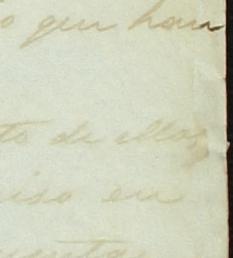 o que han
to de ellos
iso en